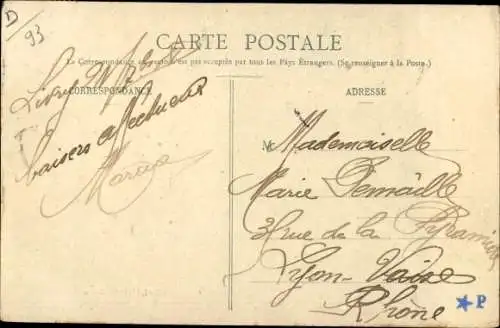 D
93
CARTE POSTALE
La Correspondance au recto n'est pas acceptée par tous les Pays Étrangers. (Se renseigner à la Poste.)
CORRESPONDANCE
ADRESSE
baisers affectueux
M
Mademoiselle
Marie
3 rue de la Pyramide
Lyon-Vaise
Rhône
P